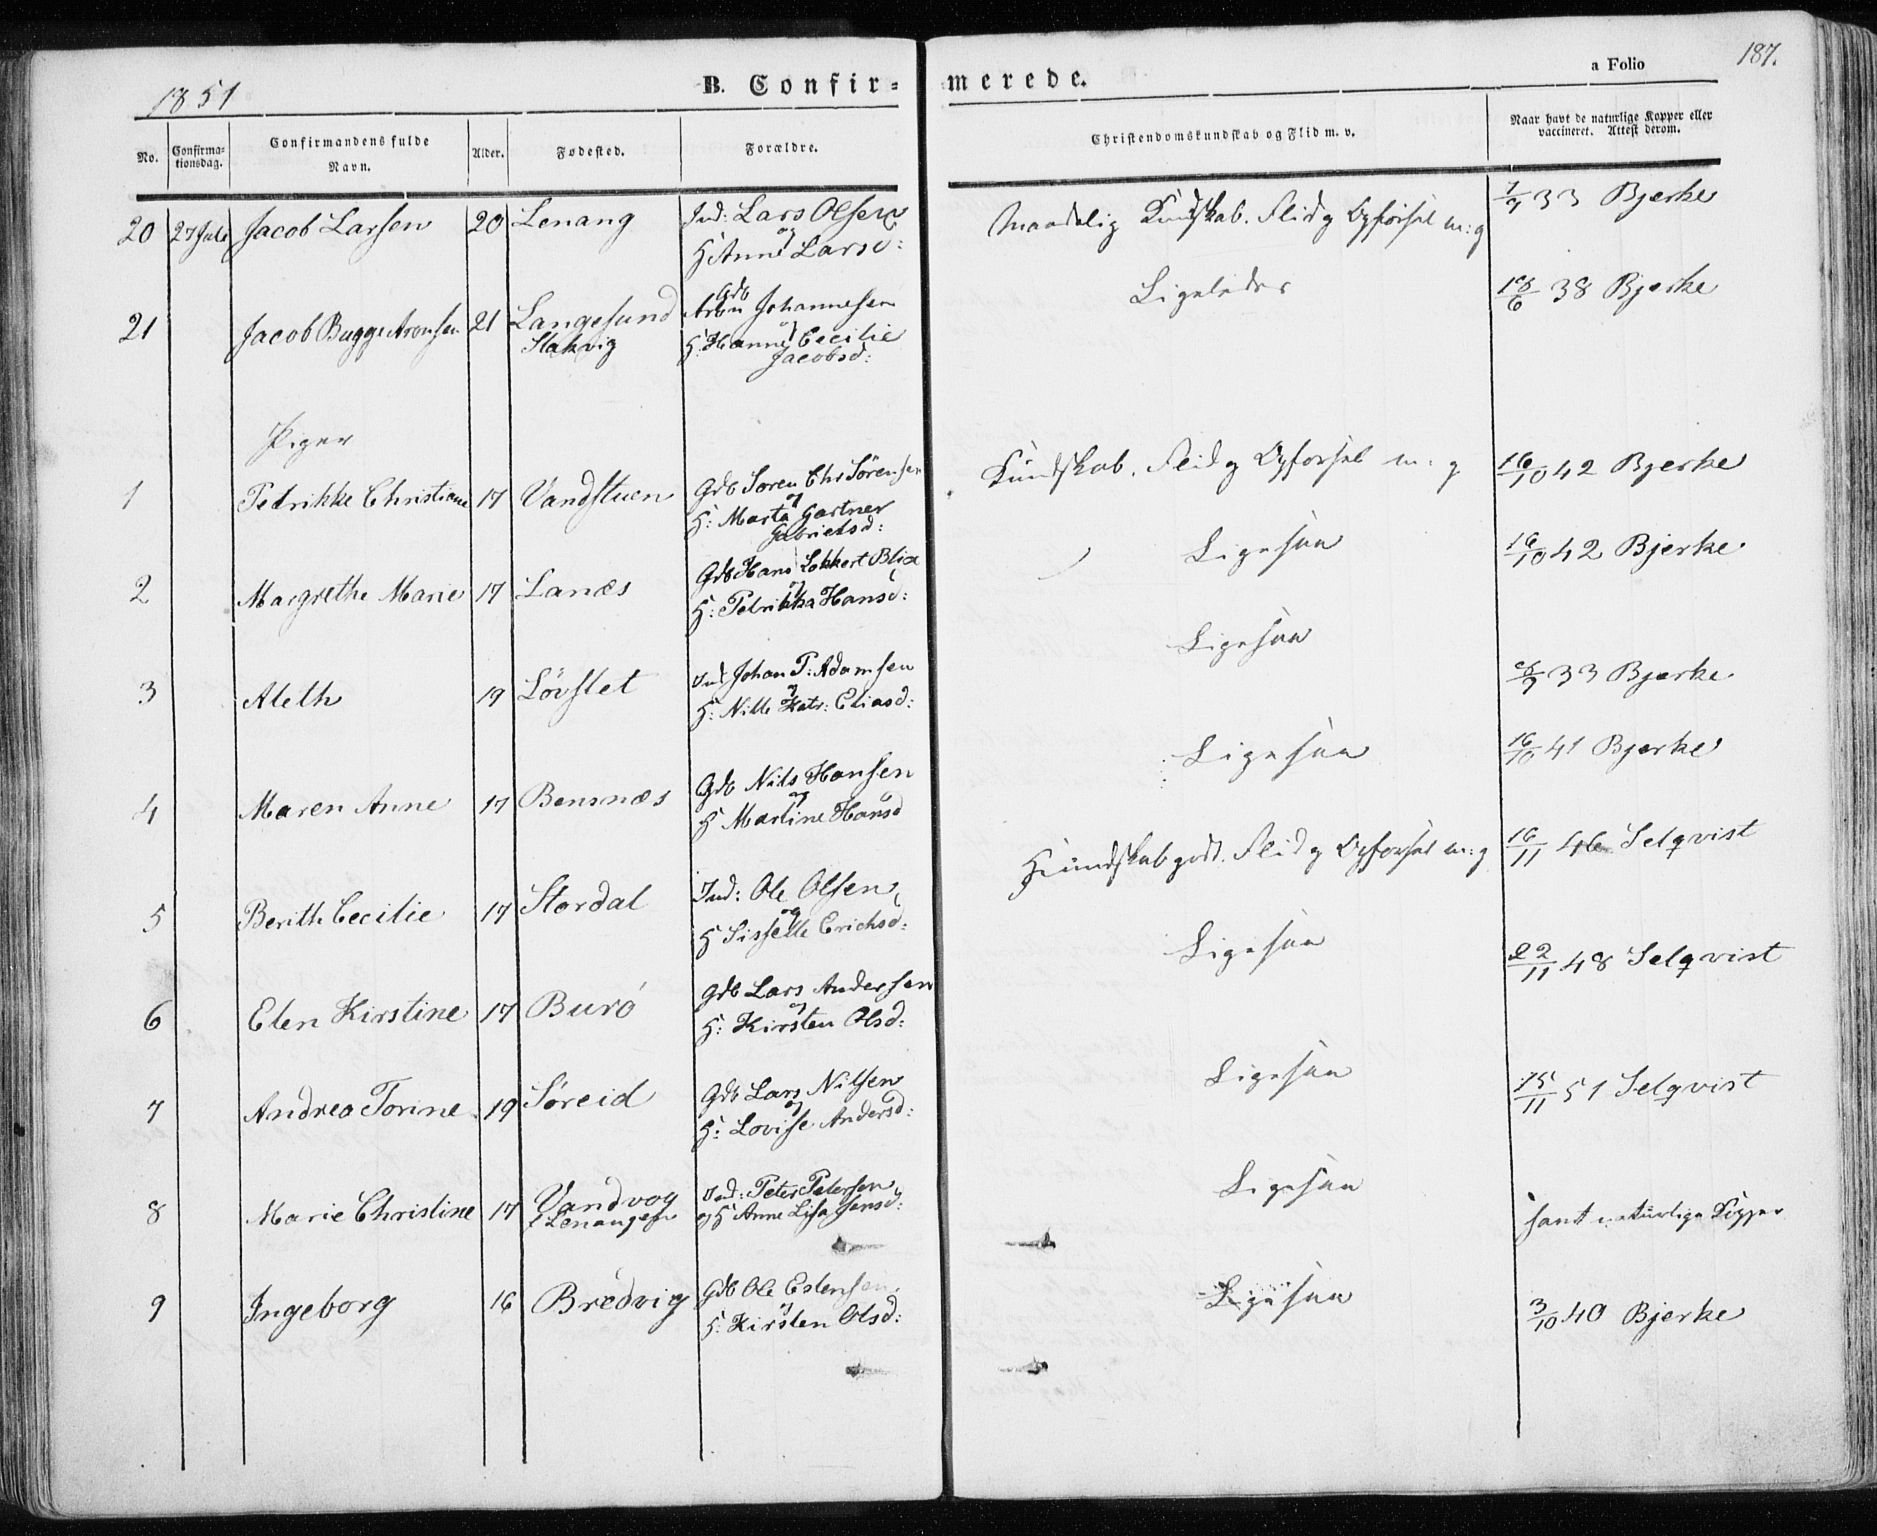 1851
B. Confir-
merede.
a Folio
187.
No.
Confirma-
tionsdag.
Confirmandens fulde
Navn.
Alder.
Fødested.
Forældre.
Christendomskundskab og Flid m. v.
Naar havt de naturlige Kopper eller
vaccineret. Attest derom.
20 27 Juli Jacob Larsen 20 Lenang Ind: Lars Olsen
og
H Anne Larsd:
maadelig Kundskab. Flid og Opførsel m: g
7/9 33 Bjerke
21 Jacob Bugge Aronsen 21 Langesund
Slakvig
Gdb
Aron Johannesen
og
H: Hanne Cecilie
Jacobsd:
Ligeledes
18/6 38 Bjerke
Piger
1 Petrikke Christiane 17 Vandstuen Gdb Søren Chr Sörensen
og
H: Marta Gartner
Gabrielsd:
Kundskab. Flid og Opførsel m: g
16/10 42 Bjerke
2 Margrethe Marie 17 Lanæs Gdb Hans Lokkert Blix
og
H: Petrikka Hansd:
Ligesaa
16/10 42 Bjerke
3 Aleth 19 Lövslet Ind Johan P: Adamsen
og
H: Nille Katr: Eliasd:
Ligesaa
8/9 33 Bjerke
4 Maren Anne 17 Bensnæs Gdb Nils Hansen
og
H Martine Hansd
Ligesaa
16/10 41 Bjerke
5 Berith Cecilie 17 Stordal Ind: Ole Olsen
og
H Sisselle Erichsd:
Kundskab godt. Flid og Opførsel m: g
16/11 46 Selqvist
6 Elen Kirstine 17 Burö Gdb Lars Andersen
og
H: Kirsten Olsd:
Ligesaa
22/11 48 Selqvist
7 Andrea Torine 19 Søreid Gdb Lars Nilsen
og
H: Lovise Andersd:
Ligesaa
15/11 51 Selqvist
8 Marie Christine 17 Vandvog
i Lenangen
Ind: Peter Petersen
og H Anne Lisa Jensd:
Ligesaa
havt naturlige Kopper
9 Ingeborg 16 Bredvig Gdb Ole Estensen
og
H: Kirsten Olsd:
Ligesaa
3/10 40 Bjerke